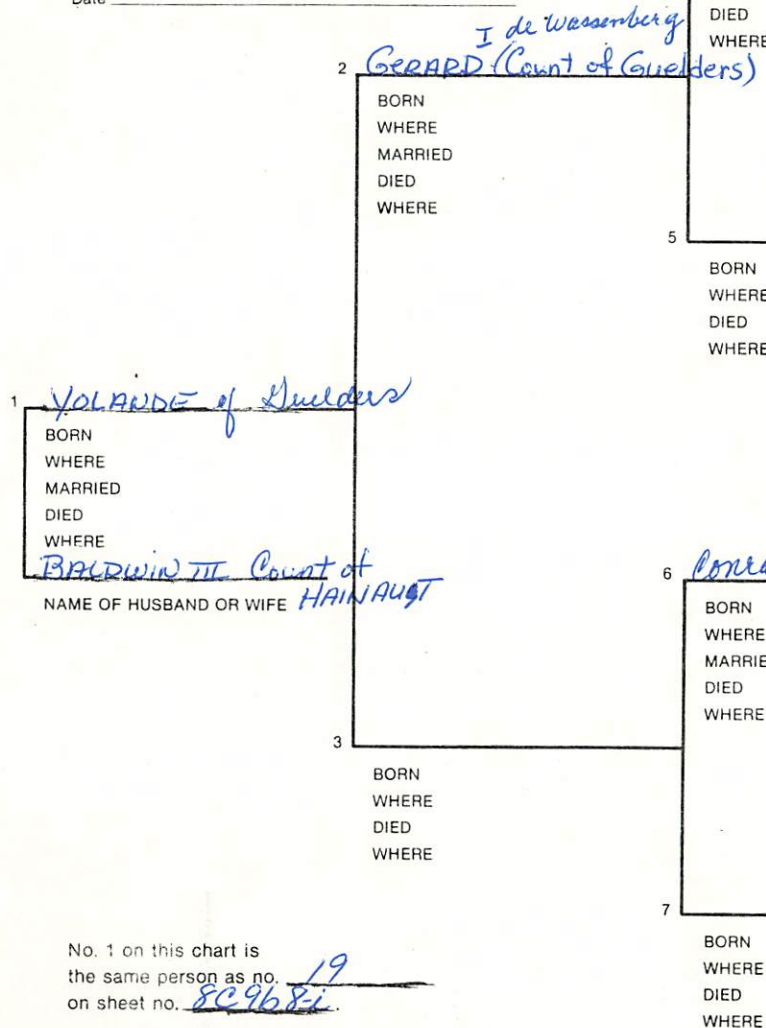 Date
DIED
WHERE
I de Wassenberg
2 GERARD (Count of Guelders)
BORN
WHERE
MARRIED
DIED
WHERE
5
BORN
WHERE
DIED
WHERE
1 YOLANDE of Guelders
BORN
WHERE
MARRIED
DIED
WHERE
BALDWIN III Count of
NAME OF HUSBAND OR WIFE HAINAUT
6
BORN
WHERE
MARRIE
DIED
WHERE
3
BORN
WHERE
DIED
WHERE
7
BORN
WHERE
DIED
WHERE
No. 1 on this chart is
the same person as no. 19
on sheet no. 8C9b8-i.